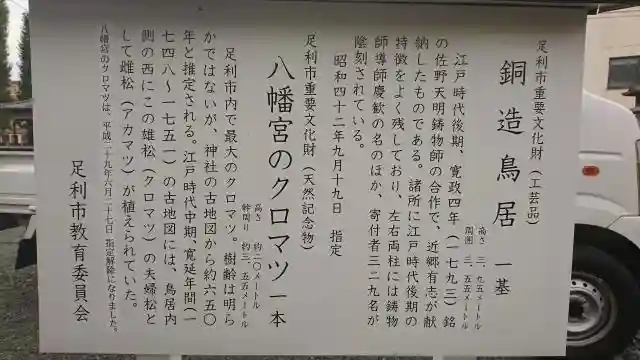 足利市重要文化財（工芸品）
銅造鳥居 一基
高さ 三、九五メートル
周囲 三、五五メートル
江戸時代後期、寛政四年（一七九三）銘
の佐野天明鋳物師の合作で、近郷有志が献
納したものである。諸所に江戸時代後期の
特徴をよく残しており、左右両柱には鋳物
師導師慶歓の名のほか、寄付者三二九名が
陰刻されている。
昭和四十二年九月十九日 指定
足利市重要文化財（天然記念物）
八幡宮のクロマツ 一本
高さ 約二〇メートル
幹周り 約三、五五メートル
足利市内で最大のクロマツ。樹齢は明ら
かではないが、神社の古地図から約六五〇
年と推定される。江戸時代中期、寛延年間（一
七四八～一七五一）の古地図には、鳥居内
側の西にこの雄松（クロマツ）の夫婦松と
して雌松（アカマツ）が植えられていた。
八幡宮のクロマツは、平成二十九年六月二十七日 指定解除になりました。
足利市教育委員会